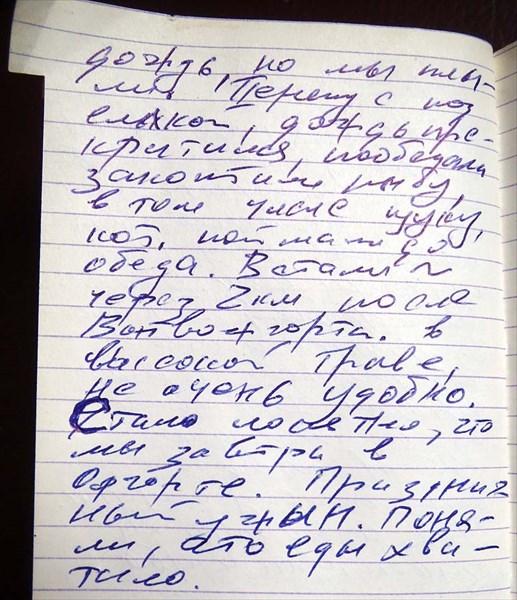 дождь, но мы плы-
ли. Перекус с коз
елькой, дождь пре-
кратился, пообедали
закоптили рыбу,
в том числе щуку,
кот. поймали до
обеда. Встали ~
через 2км после
в
высокой траве,
не очень удобно.
Стало понятно, что
мы завтра в
Праздник
ный ужин. Поня-
ли, что еды хва-
тило.